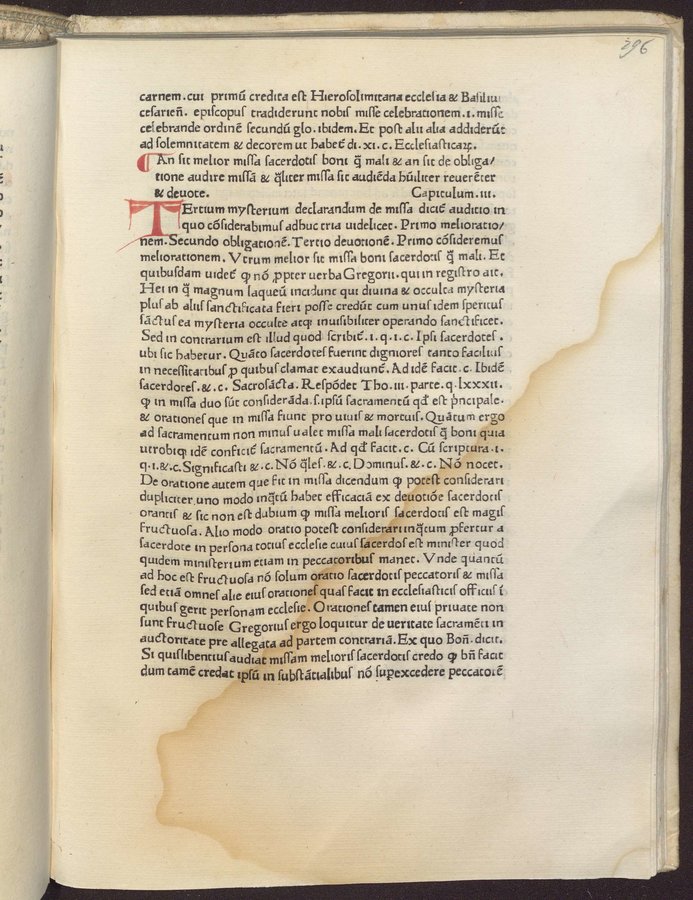 296
carnem.cui primū credita est Hierosolimitana ecclesia & Basiliu
cesarien̄. episcopus tradiderunt nobis misse celebrationem.i.misse
celebrande ordinē secundū glo.ibidem.Et post alii alia addiderūt
ad solemnitatem & decorem ut habet̄ di.xi.c.Ecclesiasticaꝝ.
An sit melior missa sacerdotis boni q̄ mali & an sit de obliga/
tione audire missā & q̄liter missa sit audiēda hūiliter reuerēter
& deuote. Capitulum.iii.
TErtium mysterium declarandum de missa dicit̄ auditio in
quo cōsiderabimus adhuc tria uidelicet. Primo melioratio/
nem.Secundo obligationē.Tertio deuotionē.Primo cōsideremus
meliorationem.Vtrum melior sit missa boni sacerdotis q̄ mali.Et
quibusdam uidet̄ ꝙ nō ꝓpter uerba Gregorii.qui in registro ait.
Hei in q̄ magnum laqueū incidunt qui diuina & occulta mysteria
plus ab aliis sanctificata fieri posse credūt cum unus idem spiritus
sāctus ea mysteria occulte atqꝫ inuisibiliter operando sanctificet.
Sed in contrarium est illud quod scribit̄.i.q.i.c.Ipsi sacerdotes.
ubi sic habetur. Quāto sacerdotes fuerint digniores tanto facilius
in necessitatibus ꝓ quibus clamat exaudiunt̄.Ad idē facit.c.Ibidē
sacerdotes.&.c. Sacrosācta. Respōdet Tho.iii.parte.q.lxxxii.
ꝙ in missa duo sūt considerāda.s.ipsū sacramentū qd̄ est p̄ncipale.
& orationes que in missa fiunt pro uiuis & mortuis.Quātum ergo
ad sacramentum non minus ualet missa mali sacerdotis q̄ boni quia
utrobiqꝫ idē conficit̄ sacramentū.Ad qd̄ facit.c. Cū scriptura.i.
q.i.&.c.Significasti &.c.Nō q̄les.&.c.Dominus.&.c.Nō nocet.
De oratione autem que fit in missa dicendum ꝙ potest considerari
dupliciter.uno modo inq̄tū habet efficaciā ex deuotiōe sacerdotis
orantis & sic non est dubium ꝙ missa melioris sacerdotis est magis
fructuosa.Alio modo oratio potest considerari inq̄tum ꝓfertur a
sacerdote in persona totius ecclesie cuius sacerdos est minister quod
quidem ministerium etiam in peccatoribus manet. Vnde quantū
ad hoc est fructuosa nō solum oratio sacerdotis peccatoris & missa
sed etiā omnes alie eius orationes quas facit in ecclesiasticis officiis ī
quibus gerit personam ecclesie.Orationes tamen eius priuate non
sunt fructuose Gregorius ergo loquitur de ueritate sacramēti in
auctoritate pre allegata ad partem contrariā.Ex quo Bon̄.dicit.
Si quis libentius audiat missam melioris sacerdotis credo ꝙ bn̄ facit
dum tamē credat ipsū in substātialibus nō supexcedere peccatorē